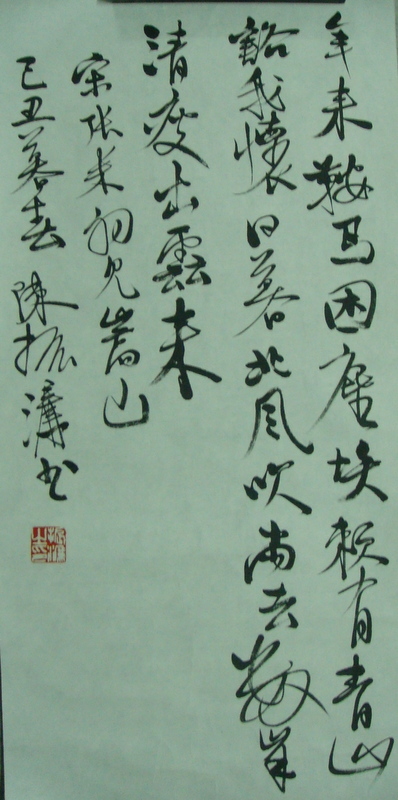 年来鞍马困尘埃赖有青山
豁我怀日暮北风吹雨去数峰
清瘦出云来
宋张耒初见嵩山
己丑暮春陈振濂书